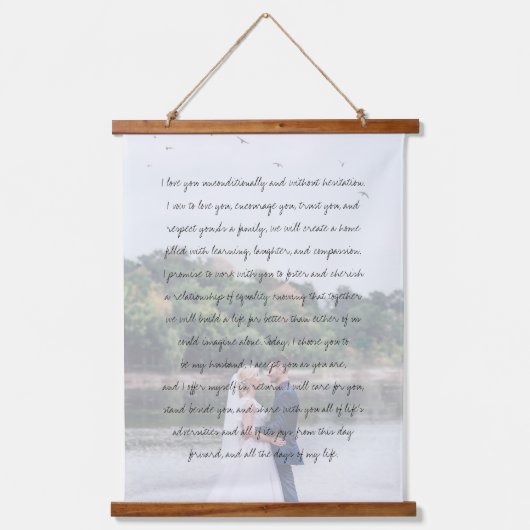 I love you unconditionally and without hesitation.
I vow to love you, encourage you, trust you, and
respect you.As a family, we will create a home
filled with learning, laughter, and compassion.
I promise to work with you to foster and cherish
a relationship of equality knowing that together
we will build a life far better than either of us
could imagine alone. Today, I choose you to
be my husband. I accept you as you are,
and I offer myself in return. I will care for you,
stand beside you, and share with you all of life's
adversities and all of its joys from this day
forward, and all the days of my life.